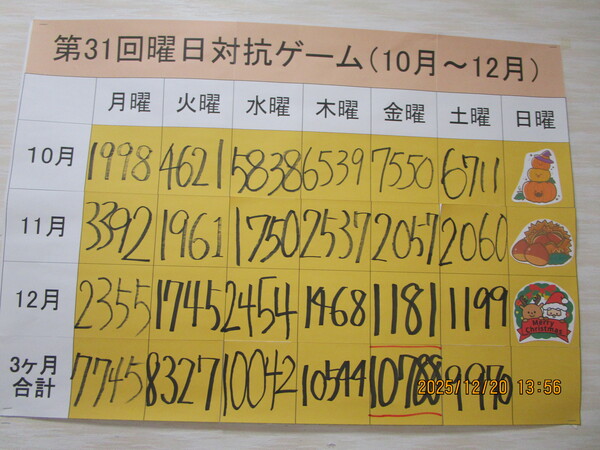 第31回曜日対抗ゲーム(10月～12月)
月曜 火曜 水曜 木曜 金曜 土曜 日曜
10月 1998 4621 5838 6539 7550 6711
11月 3392 1961 1750 2537 2057 2060
12月 2355 1745 2454 1468 1181 1199
Merry Christmas
3ヶ月合計 7745 8327 10042 10544 10788 9970
2025/12/20 13:56